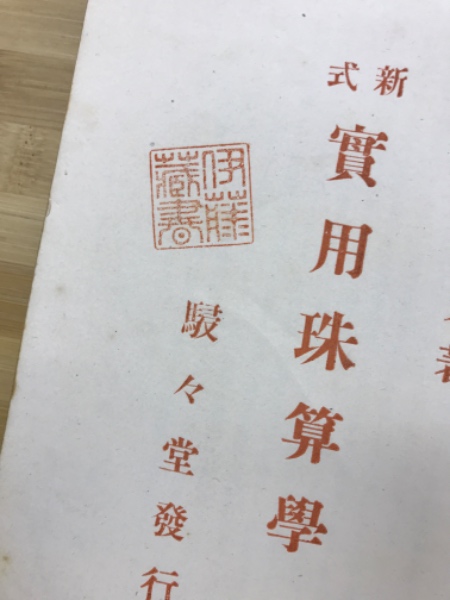 著
新式
實用珠算學
伊藤
藏書
駸々堂發行